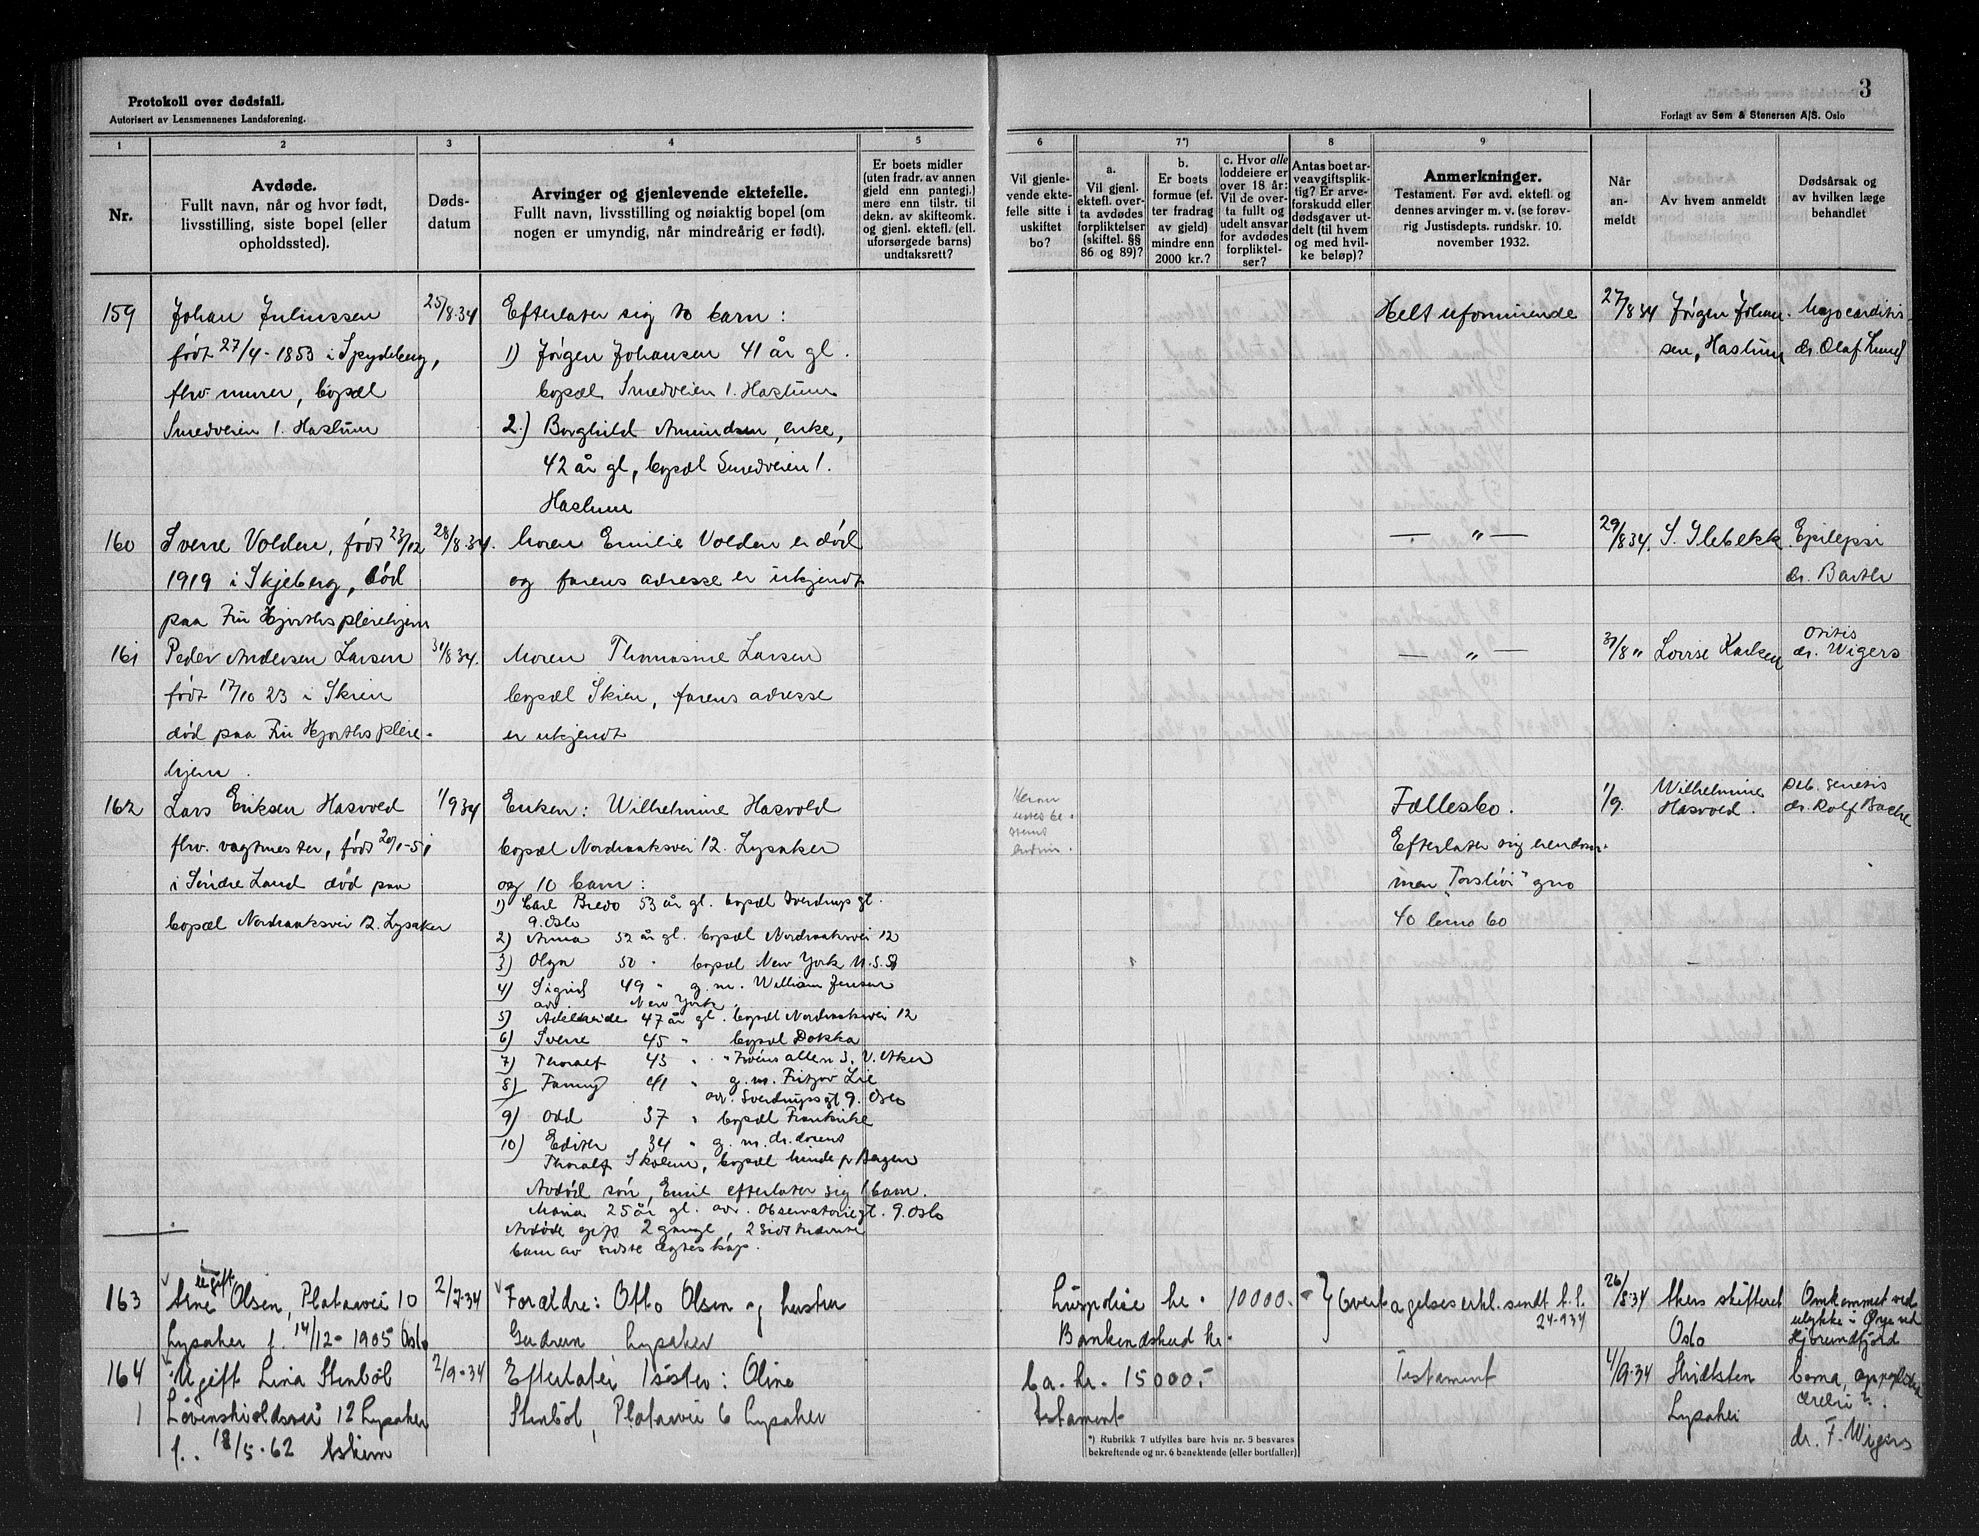 Protokoll over dødsfall.
Autorisert av Lensmennenes Landsforening.
3
Forlagt av Søm & Stenersen A/S. Oslo
1
2
3
4
5
6
7*)
8
9
Nr.
Avdøde.
Fullt navn, når og hvor født,
livsstilling, siste bopel (eller
opholdssted).
Døds-
datum
Arvinger og gjenlevende ektefelle.
Fullt navn, livsstilling og nøiaktig bopel (om
nogen er umyndig, når mindreårig er født).
Er boets midler
(uten fradr. av annen
gjeld enn pantegj.)
mere enn tilstr. til
dekn. av skifteomk.
og gjenl. ektefl. (ell.
uforsørgede barns)
undtaksrett?
Vil gjenle-
vende ekte-
felle sitte i
uskiftet
bo?
a.
Vil gjenl.
ektefl. over-
ta avdødes
forpliktelser
(skiftel. §§
86 og 89)?
b.
Er boets
formue (ef-
ter fradrag
av gjeld)
mindre enn
2000 kr.?
c. Hvor alle
loddeiere er
over 18 år:
Vil de over-
ta fullt og
udelt ansvar
for avdødes
forpliktel-
ser?
Antas boet ar-
veavgiftsplik-
tig? Er arve-
forskudd eller
dødsgaver ut-
delt (til hvem
og med hvil-
ke beløp)?
Anmerkninger.
Testament. Før avd. ektefl. og
dennes arvinger m. v. (se forøv-
rig Justisdepts. rundskr. 10.
november 1932.
Når
an-
meldt
Av hvem anmeldt
Dødsårsak og
av hvilken læge
behandlet
159
Johan Juliussen
født 27/4-1853 i Spydeberg,
fhv. murer, bopæl
Smedveien 1. Haslum
25/8.34
Efterlater sig to barn:
1) Jørgen Johansen 41 år gl.
bopæl Smedveien 1. Haslum
2.) Borghild Amundsen, enke,
42 år gl, bopæl Smedveien 1.
Haslum
Helt uformuende
27/8 34
Jørgen Johan-
sen, Haslum
Myocarditis.
dr. Olaf Lund
160
Sverre Volden, født 23/12
1919 i Skjeberg, død
paa Fru Hjorths pleiehjem
28/8.34.
Moren Emilie Volden er død
og farens adresse er ukjendt
— „ —
29/8 34.
S. Glebekk
Epilepsi
dr. Barth
161
Peder Andersen Larsen
født 17/10 23 i Skien
død paa Fru Hjorths pleie-
hjem.
31/8 34.
Moren Thomasine Larsen
bopæl Skien, farens adresse
er ukjendt
— „ —
31/8 „
Lovise Karlsen
Otitis
dr. Wigers
162
Lars Eriksen Hasvold
fhv. vagtmester, født 20/1-51
i Søndre Land død paa
bopæl Nordraaksvei 12. Lysaker
1/9 34
Enken: Wilhelmine Hasvold
bopæl Nordraaksvei 12. Lysaker
og 10 barn:
1) Carl Bredo 53 år gl. bopæl Sverdrups gt.
9. Oslo
2) Anna 52 år gl. bopæl Nordraaksvei 12
3) Olga 50 " bopæl New York U.S.A
4) Sigrid 49 " g. m. William Jensen
adr. New York "
5) Adelheide 47 år gl. bopæl Nordraaksvei 12
6) Sverre 45 " bopæl Dokka
7) Thoralf 43 " " alleen 3. V. Aker
8) Fanny 41 " g. m. Fritjov Lie
adr. Sverdrupsgt 9. Oslo
9) Odd 37 " bopæl Frankrike
10) Edith 34 " g. m. dr.
Thoralf Skolem, bopæl Minde pr Bergen
Avdød søn, Emil efterlater sig 1 barn.
Maria 25 år gl. adr. Observatoriegt. 9. Oslo
Avdøde gift 2 gange, 2 sidstnævnte
barn av sidste egteskap.
Fællesbo.
Efterlater sig eiendom-
men "Torslivi" gno
40 bno 60
1/9.
Wilhelmine
Hasvold.
Deb. senilis
dr. Rolf Bache
163
ugift
Arne Olsen, Plataavei 10
Lysaker f. 14/12-1905 Oslo
2/7-34
Forældre: Otto Olsen og hustru
Gudrun Lysaker
Livspolise kr. 10000.-
Bankindskud kr.
Overtagelseserkl. sendt t.l.
24-9 34
26/8-34
Akers skifteret
Oslo
Omkommet ved
ulykke i Ørsta ved
Hjørundfjord
164
1
Ugift Lina Stenbøl
Løvenskioldsvei 12 Lysaker
f. 18/5-62 Askim
2/9-34
Efterlater 1 søster: Oline
Stenbøl, Plataavei 6 Lysaker
ca. kr. 15000.-
testament
Testament
4/9-34
Lysaker
Coma, apoplexia
cerebri.
dr. F. Wigers
*) Rubrikk 7 utfylles bare hvis nr. 5 besvares
bekreftende og nr. 6 benektende (eller bortfaller)